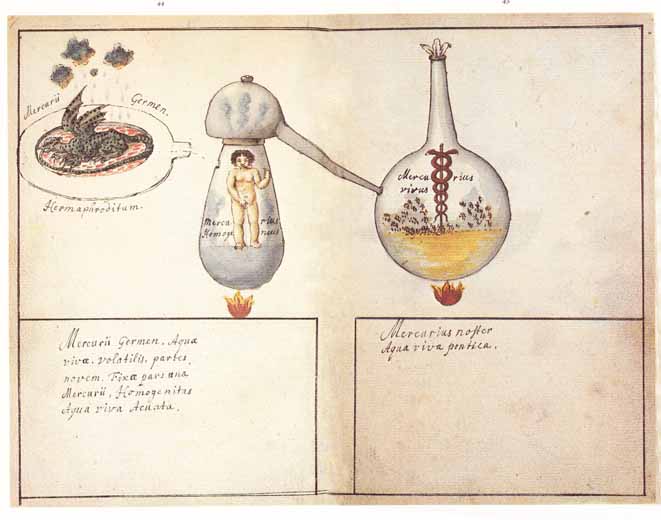 44
45
Mercurii Germen.
Hermaphroditum.
Mercurius
Homogeneus
Mercurius
vivus
Mercurii Germen. Aqua
viva. volatilis. partes
novem. Fixæ pars una
Mercurii, Homogenitas
Aqua viva Acuata.
Mercurius noster
Aqua viva pontica.